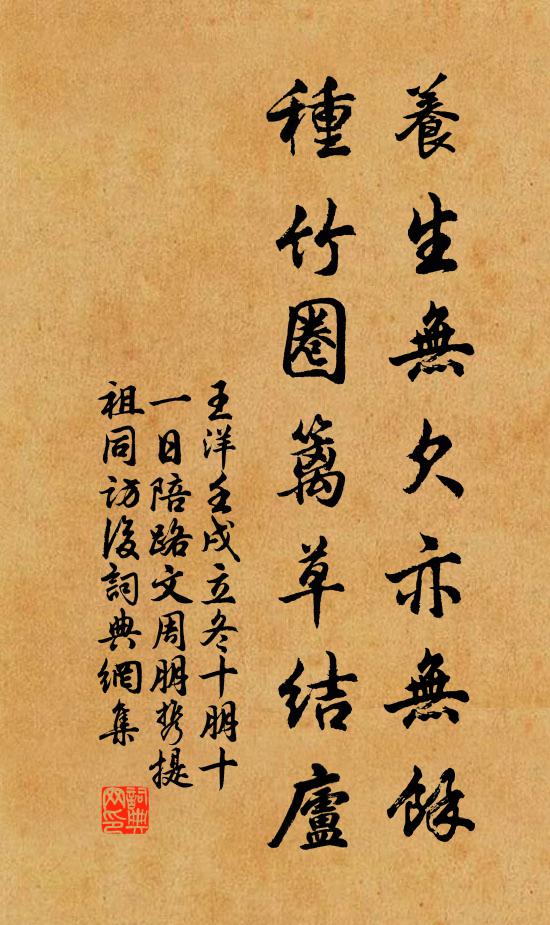 養生無欠亦無餘
種竹圈籬草結廬
王洋壬戌立冬十朋十
一日陪路文周朋携提
祖同訪後詞典網集
詞典網印